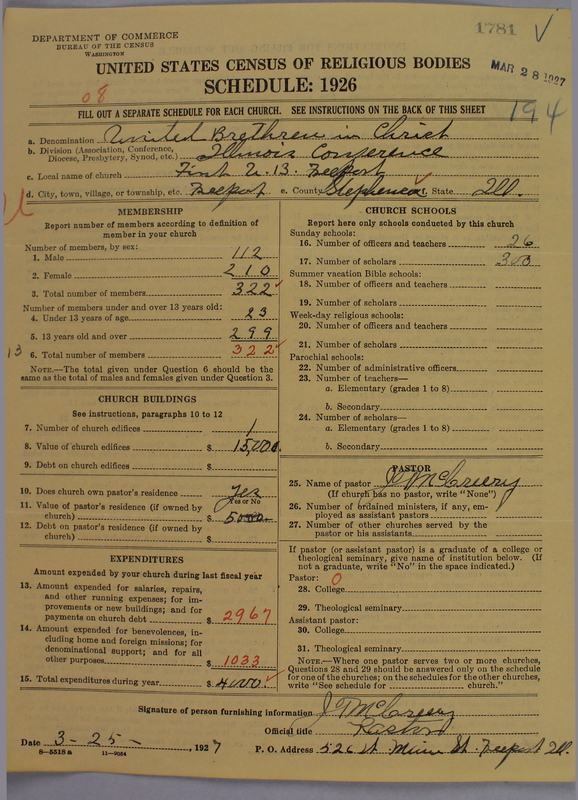 1781
DEPARTMENT OF COMMERCE
BUREAU OF THE CENSUS
WASHINGTON
MAR 28 1927
UNITED STATES CENSUS OF RELIGIOUS BODIES
SCHEDULE: 1926
08
FILL OUT A SEPARATE SCHEDULE FOR EACH CHURCH. SEE INSTRUCTIONS ON THE BACK OF THIS SHEET
194
a. Denomination United Brethren in Christ
b. Division (Association, Conference, Diocese, Presbytery, Synod, etc.) Illinois Conference
c. Local name of church First U. B. Freeport
d. City, town, village, or township, etc. Freeport e. County Stephenson f. State Ill.
MEMBERSHIP
Report number of members according to definition of
member in your church
Number of members, by sex:
1. Male 112
2. Female 210
3. Total number of members 322
Number of members under and over 13 years old:
4. Under 13 years of age 23
5. 13 years old and over 299
13
6. Total number of members 322
NOTE.—The total given under Question 6 should be
same as the total of males and females given under Question 3.
CHURCH BUILDINGS
See instructions, paragraphs 10 to 12
7. Number of church edifices 1
8. Value of church edifices $ 15,000.
9. Debt on church edifices $
10. Does church own pastor's residence Yes
Yes or No
11. Value of pastor's residence (if owned by
church) $ 5000
12. Debt on pastor's residence (if owned by
church) $
EXPENDITURES
Amount expended by your church during last fiscal year
13. Amount expended for salaries, repairs,
and other running expenses; for im-
provements or new buildings; and for
payments on church debt $ 2967
14. Amount expended for benevolences, in-
cluding home and foreign missions; for
denominational support; and for all
other purposes $ 1033
15. Total expenditures during year $ 4000.
CHURCH SCHOOLS
Report here only schools conducted by this church
Sunday schools:
16. Number of officers and teachers 26
17. Number of scholars 300
Summer vacation Bible schools:
18. Number of officers and teachers
19. Number of scholars
Week-day religious schools:
20. Number of officers and teachers
21. Number of scholars
Parochial schools:
22. Number of administrative officers
23. Number of teachers—
a. Elementary (grades 1 to 8)
b. Secondary
24. Number of scholars—
a. Elementary (grades 1 to 8)
b. Secondary
PASTOR
25. Name of pastor J T McCreery
(If church has no pastor, write "None")
26. Number of ordained ministers, if any, em-
ployed as assistant pastors
27. Number of other churches served by the
pastor or his assistants
If pastor (or assistant pastor) is a graduate of a college or
theological seminary, give name of institution below. (If
not a graduate, write "No" in the space indicated.)
Pastor: 0
28. College
29. Theological seminary
Assistant pastor:
30. College
31. Theological seminary
NOTE.—Where one pastor serves two or more churches,
Questions 28 and 29 should be answered only on the schedule
for one of the churches; on the schedules for the other churches,
write "See schedule for church."
Signature of person furnishing information J T McCreery
Official title Pastor
Date 3-25-, 1927 P. O. Address 526 W Main St. Freeport Ill.
8-5518 a 11-9054